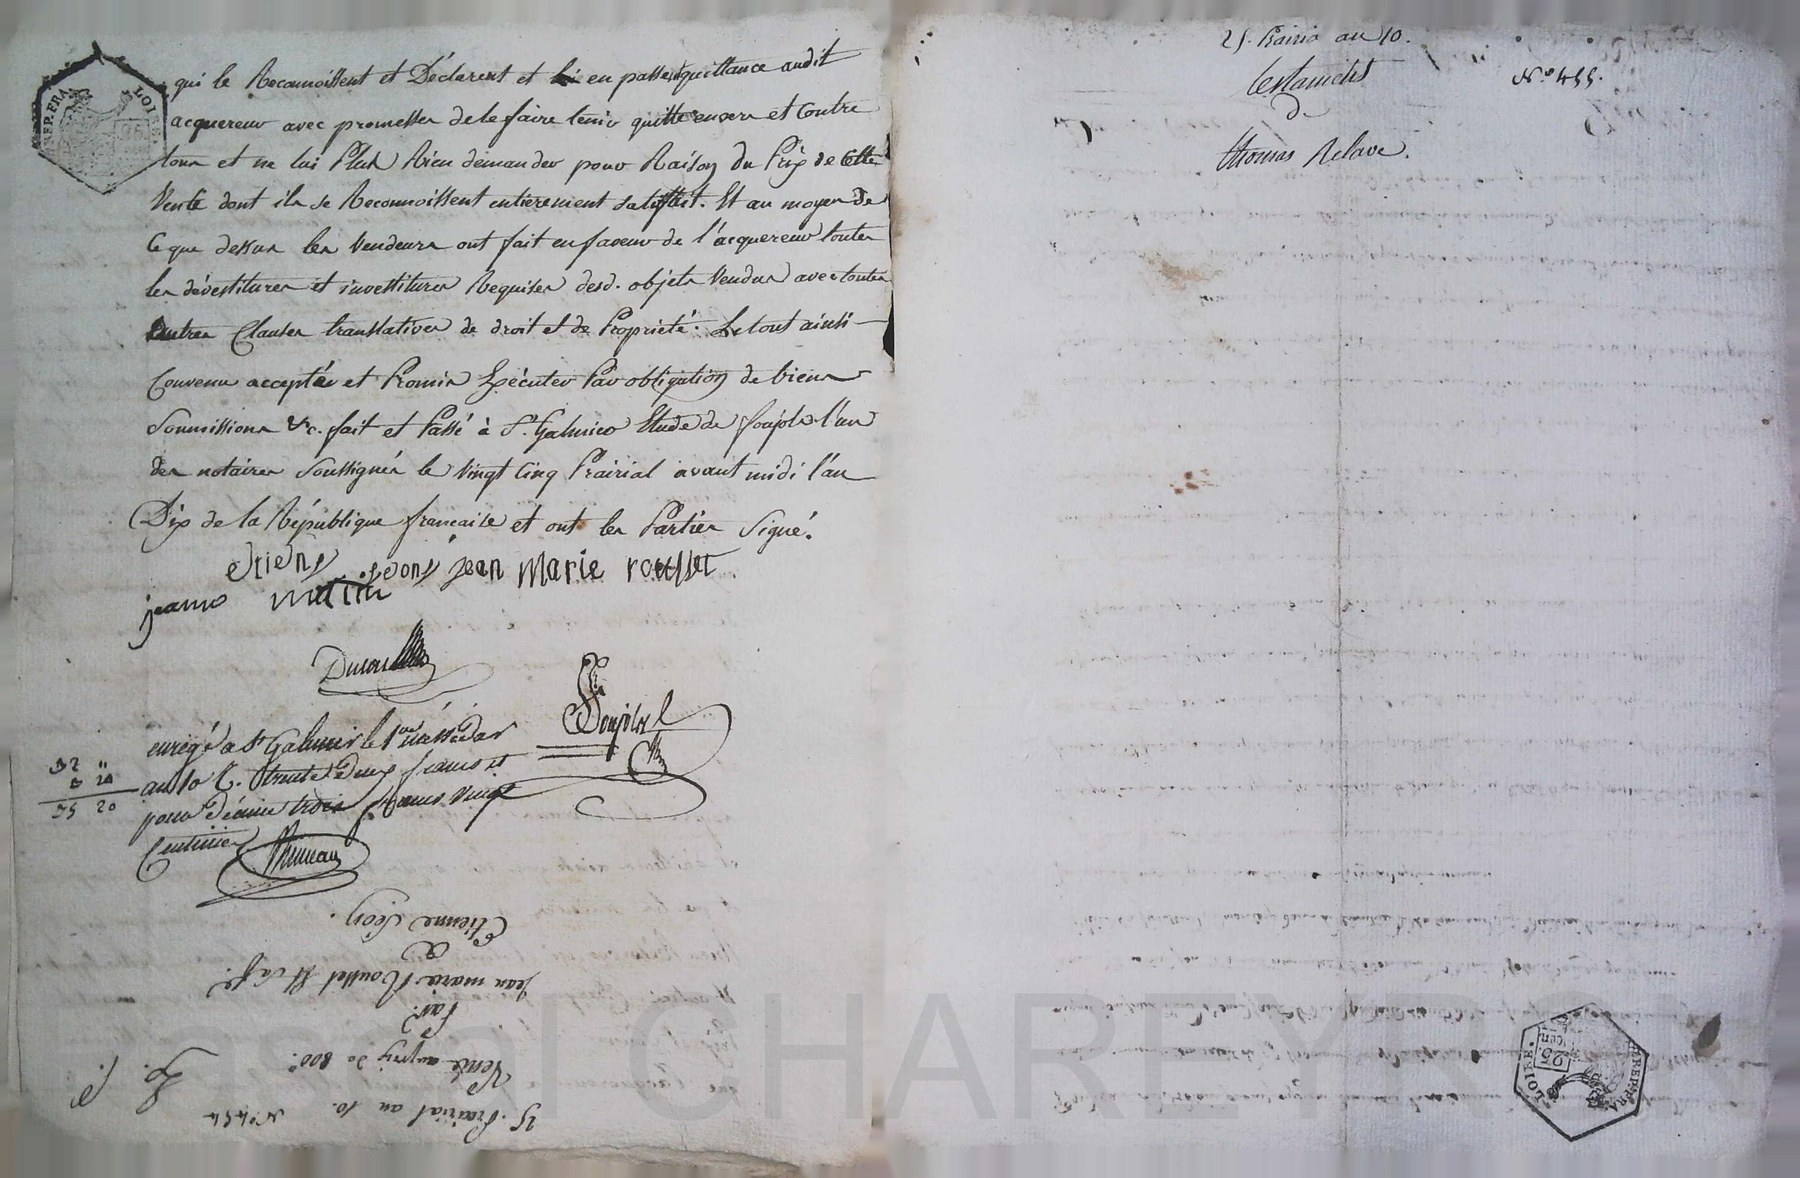 qui le Reconnoissent et Déclarent et lui en passent quittance audit
acquereur avec promesse de le faire tenir quitte envers et Contre
tous et ne lui Plus Rien demander pour Raison du Prix de Cette
Vente dont ils se Reconnoissent entièrement satisfait. Et au moyen de
Ce que dessus les Vendeurs ont fait en faveur de l'acquereur toutes
les dévestitures et investitures Requises desd. objets Vendus avec toutes
autres Clauses translatives de droit et de Propriété. Le tout ainsi
Convenu accepté et Promis Exécuter Par obligation de biens
Soumissions &c. fait et Passé à St. Galmier Etude de Poujols l'un
des notaires Soussignés le Vingt Cinq Prairial avant midi l'an
Dix de la République francaise et ont les Parties Signé.
etieny jeony jean Marie rousset
jeanne
Poujols
enregé a St Galmier le 1er messidor
32 "
an 10 R. trente deux francs et
3 20
pour décime trois francs vingt
35 20
Centimes
25. Prairial an 10. N° 454
Vente au prix de 800.
Par
Jean marie Rousset Et sa fe.
à
Etienne Jéony.
25. Prairia an 10.
testament N° 455.
de
thomas Relave.
REP. FRA.
LOIRE.
25
CEN
Pascal CHARLYRON